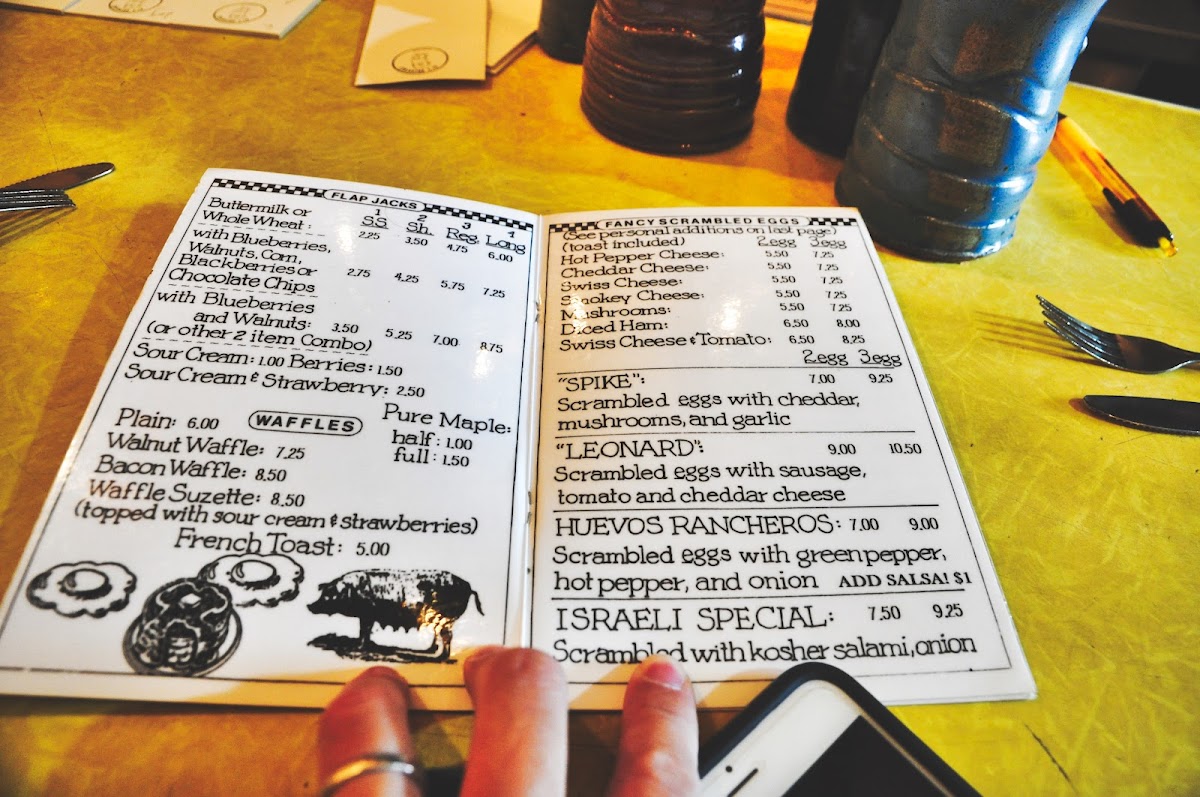 FLAP JACKS
1 2 3 4
Buttermilk or S.S Sh. Reg. Long
Whole Wheat: 2.25 3.50 4.75 6.00
with Blueberries,
Walnuts, Corn,
Blackberries or 2.75 4.25 5.75 7.25
Chocolate Chips
with Blueberries
and Walnuts: 3.50 5.25 7.00 8.75
(or other 2 item Combo)
Sour Cream: 1.00 Berries: 1.50
Sour Cream & Strawberry: 2.50
WAFFLES
Plain: 6.00
Walnut Waffle: 7.25
Bacon Waffle: 8.50
Waffle Suzette: 8.50
(topped with sour cream & strawberries)
Pure Maple:
half: 1.00
full: 1.50
French Toast: 5.00
FANCY SCRAMBLED EGGS
(See personal additions on last page)
(toast included) 2 egg 3 egg
Hot Pepper Cheese: 5.50 7.25
Cheddar Cheese: 5.50 7.25
Swiss Cheese: 5.50 7.25
Smokey Cheese: 5.50 7.25
Mushrooms: 5.50 7.25
Diced Ham: 6.50 8.00
Swiss Cheese & Tomato: 6.50 8.25
2 egg 3 egg
"SPIKE": 7.00 9.25
Scrambled eggs with cheddar,
mushrooms, and garlic
"LEONARD": 9.00 10.50
Scrambled eggs with sausage,
tomato and cheddar cheese
HUEVOS RANCHEROS: 7.00 9.00
Scrambled eggs with green pepper,
hot pepper, and onion ADD SALSA! $1
ISRAELI SPECIAL: 7.50 9.25
Scrambled with kosher salami, onion